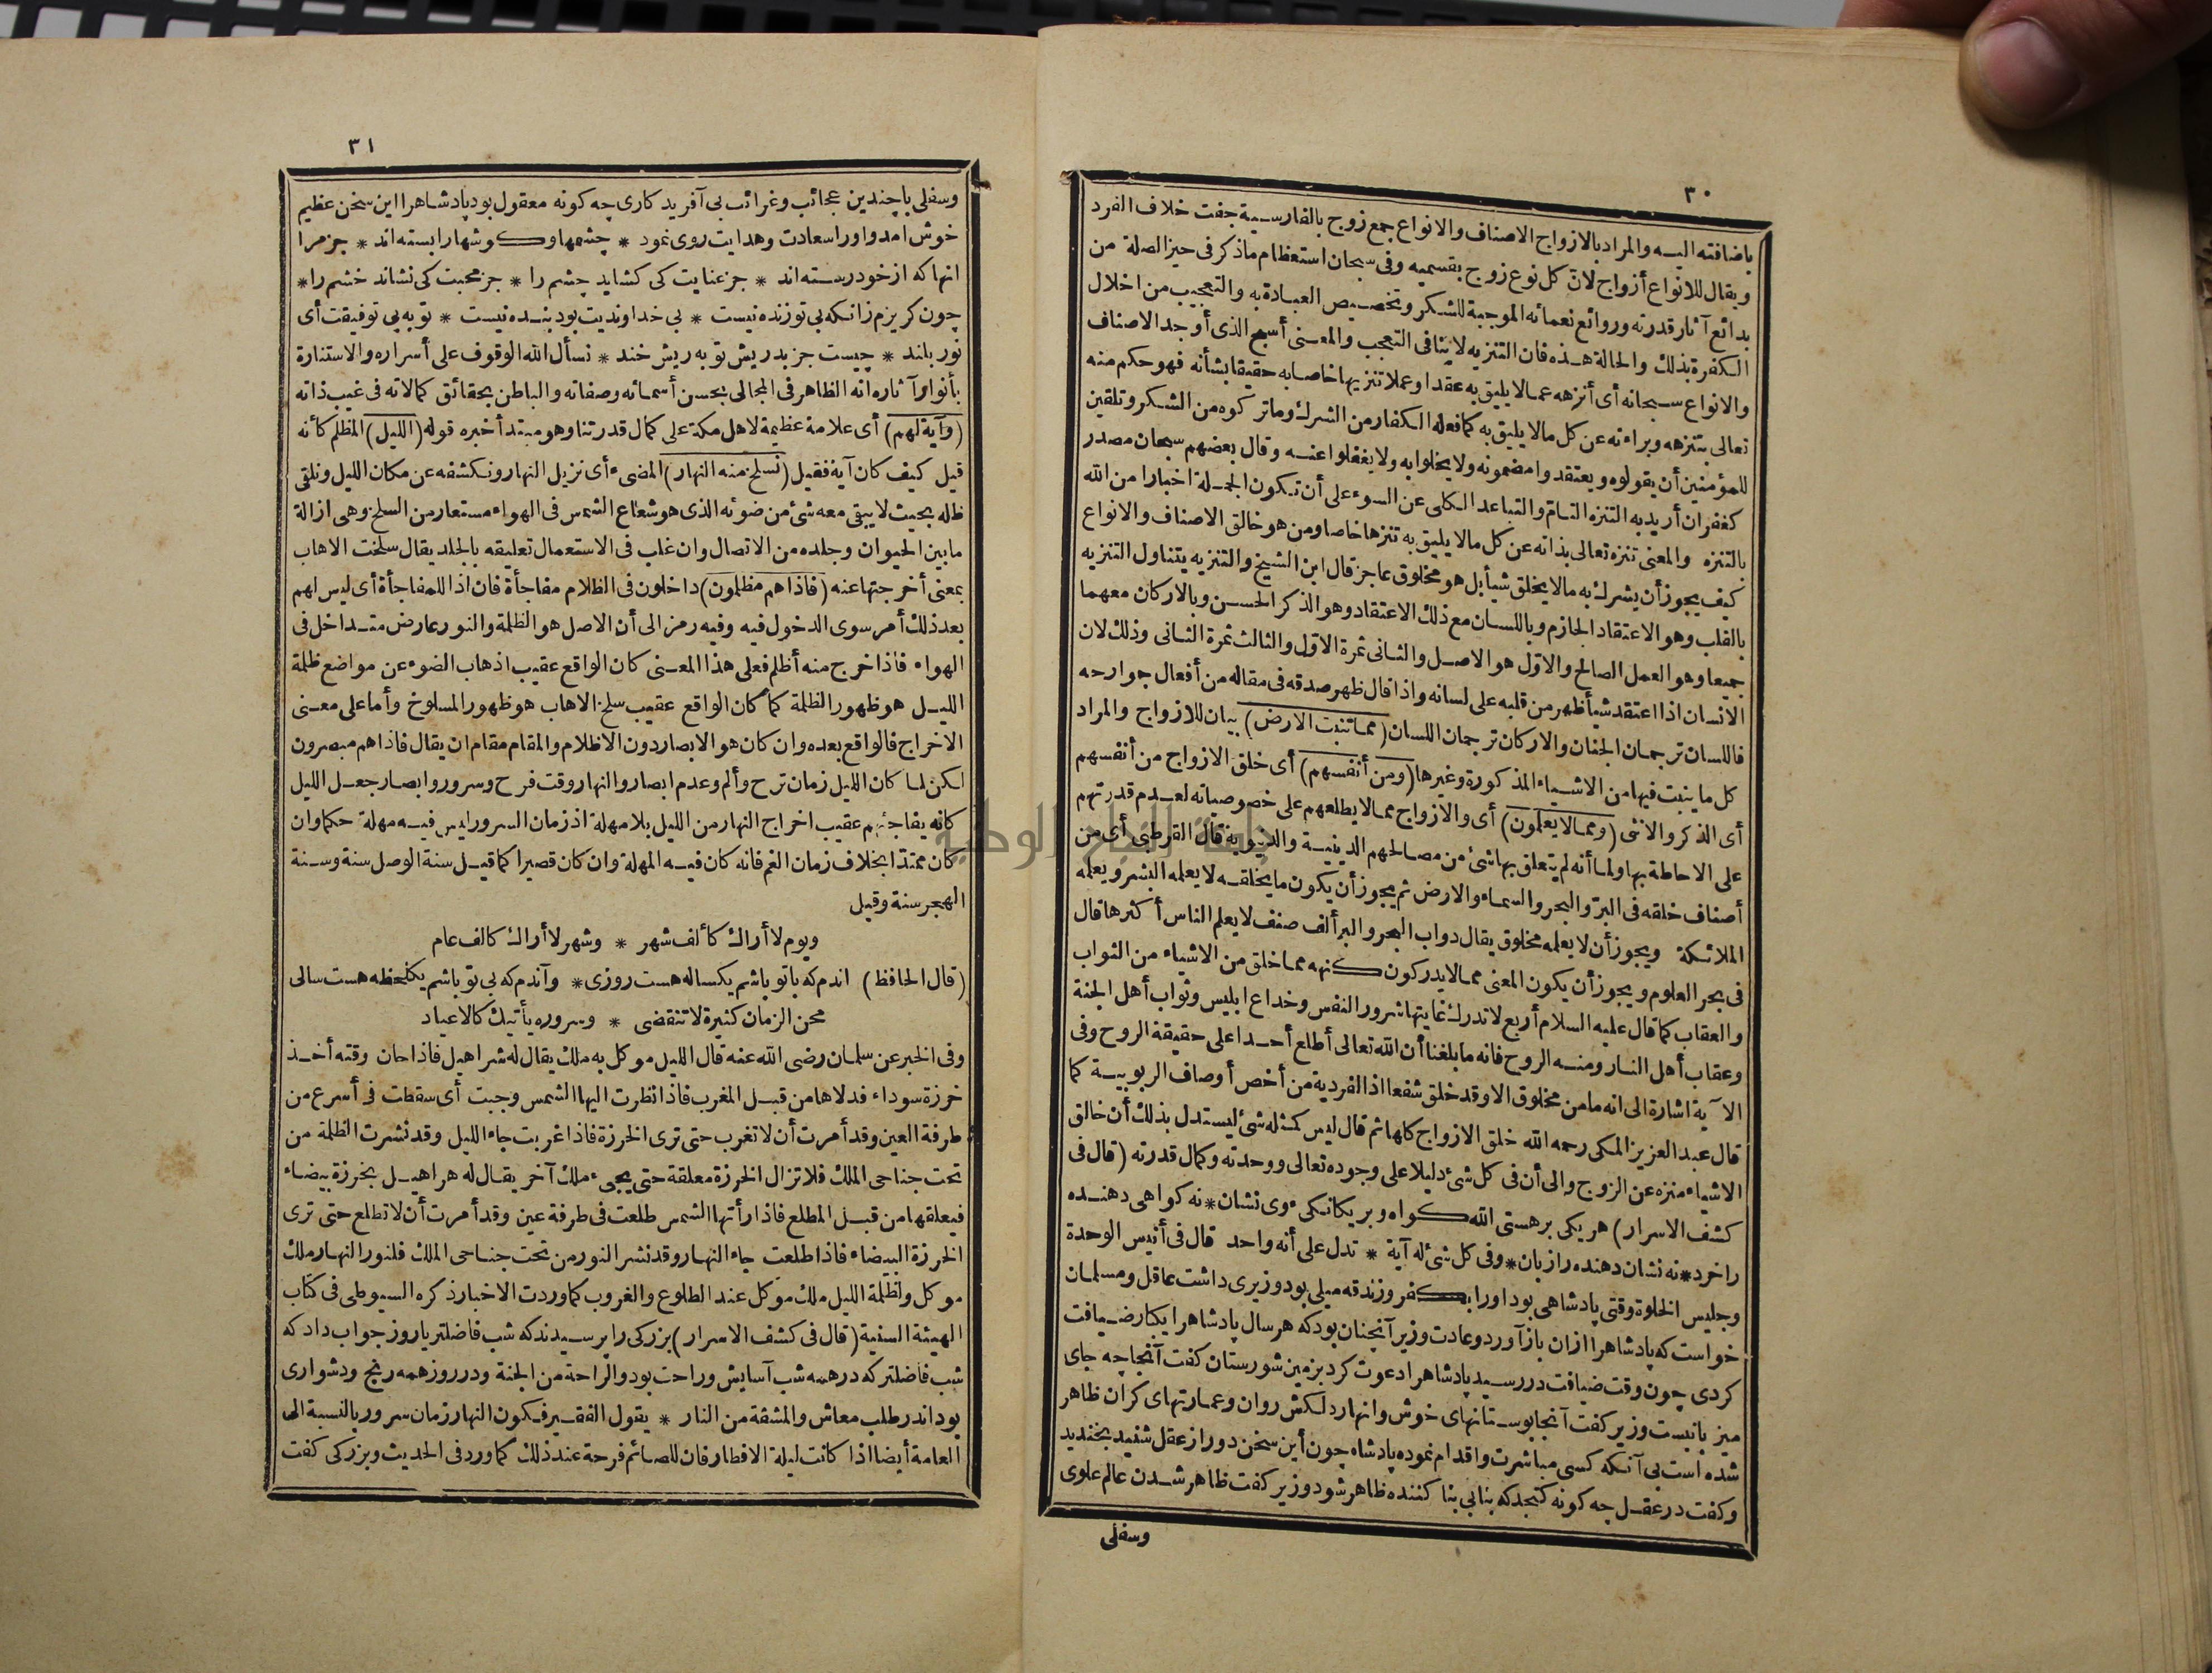 ٣٠
باضافته اليه والمراد بالازواج الاصناف والانواع جمع زوج بالفارسية جفت خلاف الفرد
ويقال للانواع أزواج لان كل نوع زوج بقسميه وفى سبحان استعظام ماذكر فى حيز الصلة من
بدائع آثار قدرته وروائع نعمائه الموجبة للشكر وتخصيص العبادة به والتعجيب من اخلال
الكفرة بذلك والحالة هذه فان التنزيه لا ينافى التعجب والمعنى أسبح الذى أوجد الاصناف
والانواع سبحانه أى أنزهه عمالا يليق به عقدا وعملا تنزيها خاصا به حقيقا بشأنه فهو حكم منه
تعالى بتنزهه وبراءته عن كل مالا يليق به كمافعله الكفار من الشرك وماتركوه من الشكر وتلقين
للمؤمنين أن يقولوه ويعتقدوا مضمونه ولا يخلوا به ولا يغفلوا عنه وقال بعضهم سبحان مصدر
كغفران أريد به التنزه التام والتباعد الكلى عن السوء على أن تكون الجملة اخبارا من الله
بالتنزه والمعنى تنزه تعالى بذاته عن كل مالا يليق به تنزها خاصا ومن هو خالق الاصناف والانواع
كيف يجوز أن يشرك به مالا يخلق شيأ بل هو مخلوق عاجز قال ابن الشيخ والتنزيه يتناول التنزيه
بالقلب وهو الاعتقاد الجازم وباللسان مع ذلك الاعتقاد وهو الذكر الحسن وبالاركان معهما
جميعا وهو العمل الصالح والاوّل هو الاصل والثانى ثمرة الاوّل والثالث ثمرة الثانى وذلك لان
الانسان اذا اعتقد شيأ ظهر من قلبه على لسانه واذا قال ظهر صدقه فى مقاله من أفعال جوارحه
فاللسان ترجمان الجنان والاركان ترجمان اللسان (مما تنبت الارض) بيان للازواج والمراد
كل ما ينبت فيها من الاشياء المذكورة وغيرها (ومن أنفسهم) أى خلق الازواج من أنفسهم
أى الذكر والانثى (ومما لا يعلمون) أى والازواج مما لا يطلعهم على خصوصياته لعدم قدرتهم
على الاحاطة بها ولما أنه لم يتعلق بها شئ من مصالحهم الدينية والدنيوية قال القرطبى أى من
أصناف خلقه فى البرّ والبحر والسماء والارض ثم يجوز أن يكون ما يخلقه لا يعلمه البشر ويعلمه
الملائكة ويجوز أن لا يعلمه مخلوق يقال دواب البحر والبر ألف صنف لا يعلم الناس أكثرها قال
فى بحر العلوم ويجوز أن يكون المعنى مما لا يدركون كنهه مما خلق من الاشياء من الثواب
والعقاب كما قال عليه السلام أربع لا تدرك غايتها شرور النفس وخداع ابليس وثواب أهل الجنة
وعقاب أهل النار ومنه الروح فانه ما بلغنا أن الله تعالى أطلع أحدا على حقيقة الروح وفى
الآية اشارة الى انه ما من مخلوق الا وقد خلق شفعا اذ الفردية من أخص أوصاف الربوبية كما
قال عبد العزيز المكى رحمه الله خلق الازواج كلها ثم قال ليس كمثله شئ ليستدل بذلك أن خالق
الاشياء منزه عن الزوج والى أن فى كل شئ دليلا على وجوده تعالى ووحدته وكمال قدرته (قال فى
كشف الاسرار) هر يكى بر هستى الله كواه وبر يكانكىء وى نشان * نه كواهى دهنده
را خرد * نه نشان دهنده را زبان * وفى كل شئ له آية * تدل على أنه واحد قال فى أنيس الوحدة
وجليس الخلوة وقتى پادشاهى بود اورا بكفر وزندقه ميلى بود وزيرى داشت عاقل ومسلمان
خواست كه پادشاهرا ازان باز آورد وعادت وزير آنچنان بود كه هر سال پادشاهرا يكبار ضيافت
كردى چون وقت ضيافت در رسيد پادشاهرا دعوت كرد بزمين شورستان كفت آنجا چه جاى
ميز بانيست وزير كفت آنجا بوستانهاى خوش وانهار دلكش روان وعمارتهاى كران ظاهر
شده است بى آنكه كسى مباشرت واقدام نموده پادشاه چون أين سخن دور از عقل شنيد بخنديد
وكفت در عقل چه كونه كنجد كه بنابى بنا كننده ظاهر شود وزير كفت ظاهر شدن عالم علوى
وسفلى
٣١
وسفلى با چندين عجائب وغرائب بى آفريدكارى چه كونه معقول بود پادشاهرا اين سخن عظيم
خوش امد واورا سعادت وهدايت روى نمود * چشمها وكوشها را بسته اند * جز مرا
انها كه از خود رسته اند * جز عنايت كى كشايد چشم را * جز محبت كى نشاند خشم را *
چون كريزم زانكه بى تو زنده نيست * بى خداونديت بود بنده نيست * توبه بى توفيقت أى
نور بلند * چيست جز بدريش توبه ريش خند * نسأل الله الوقوف على أسراره والاستنارة
بأنوار آثاره انه الظاهر فى المجالى بحسن أسمائه وصفاته والباطن بحقائق كمالاته فى غيب ذاته
(وآية لهم) أى علامة عظيمة لاهل مكة على كمال قدرتنا وهو مبتدأ خبره قوله (الليل) المظلم كأنه
قيل كيف كان آية فقيل (نسلخ منه النهار) المضىء أى نزيل النهار ونكشفه عن مكان الليل ونلقى
ظله بحيث لا يبقى معه شئ من ضوئه الذى هو شعاع الشمس فى الهواء مستعار من السلخ وهى ازالة
مابين الحيوان وجلده من الاتصال وان غلب فى الاستعمال تعليقه بالجلد يقال سلخت الاهاب
بمعنى أخرجتها عنه (فاذا هم مظلمون) داخلون فى الظلام مفاجأة فان اذا للمفاجأة أى ليس لهم
بعد ذلك أمر سوى الدخول فيه وفيه رمز الى أن الاصل هو الظلمة والنور عارض متداخل فى
الهواء فاذا خرج منه أظلم فعلى هذا المعنى كان الواقع عقيب اذهاب الضوء عن مواضع ظلمة
الليل هو ظهور الظلمة كما كان الواقع عقيب سلخ الاهاب هو ظهور المسلوخ وأما على معنى
الاخراج فالواقع بعده وان كان هو الابصار دون الاظلام والمقام مقام ان يقال فاذا هم مبصرون
لكن لما كان الليل زمان ترح وألم وعدم ابصار والنهار وقت فرح وسرور وابصار جعل الليل
كانه يفاجئهم عقيب اخراج النهار من الليل بلا مهلة اذ زمان السرور ليس فيه مهلة حكما وان
كان ممتدّا بخلاف زمان الغم فانه كان فيه المهلة وان كان قصيرا كما قيل سنة الوصل سنة وسنة
الهجر سنة وقيل
ويوم لا أراك كألف شهر * وشهر لا أراك كالف عام
(قال الحافظ) اندم كه با تو باشم يكساله هست روزى * وآندم كه بى تو باشم يكلحظه هست سالى
محن الزمان كثيرة لا تنقضى * وسروره يأتيك كالاعياد
وفى الخبر عن سلمان رضى الله عنه قال الليل موكل به ملك يقال له شراهيل فاذا حان وقته أخذ
خرزة سوداء فدلاها من قبل المغرب فاذا نظرت اليها الشمس وجبت أى سقطت فى أسرع من
طرفة العين وقد أمرت أن لا تغرب حتى ترى الخرزة فاذا غربت جاء الليل وقد نشرت الظلمة من
تحت جناحى الملك فلا تزال الخرزة معلقة حتى يجىء ملك آخر يقال له هراهيل بخرزة بيضاء
فيعلقها من قبل المطلع فاذا رأتها الشمس طلعت فى طرفة عين وقد أمرت أن لا تطلع حتى ترى
الخرزة البيضاء فاذا طلعت جاء النهار وقد نشر النور من تحت جناحى الملك فلنور النهار ملك
موكل ولظلمة الليل ملك موكل عند الطلوع والغروب كما وردت الاخبار ذكره السيوطى فى كتاب
الهيئة السنية (قال فى كشف الاسرار) بزركى را پرسيدند كه شب فاضلتر يا روز جواب داد كه
شب فاضلتر كه در همه شب آسايش وراحت بود والراحة من الجنة ودر روز همه رنج ودشوارى
بود اندر طلب معاش والمشقة من النار * يقول الفقير فكون النهار زمان سرور بالنسبة الى
العامة أيضا اذا كانت ليلة الافطار فان للصائم فرحة عند ذلك كما ورد فى الحديث وبزركى كفت